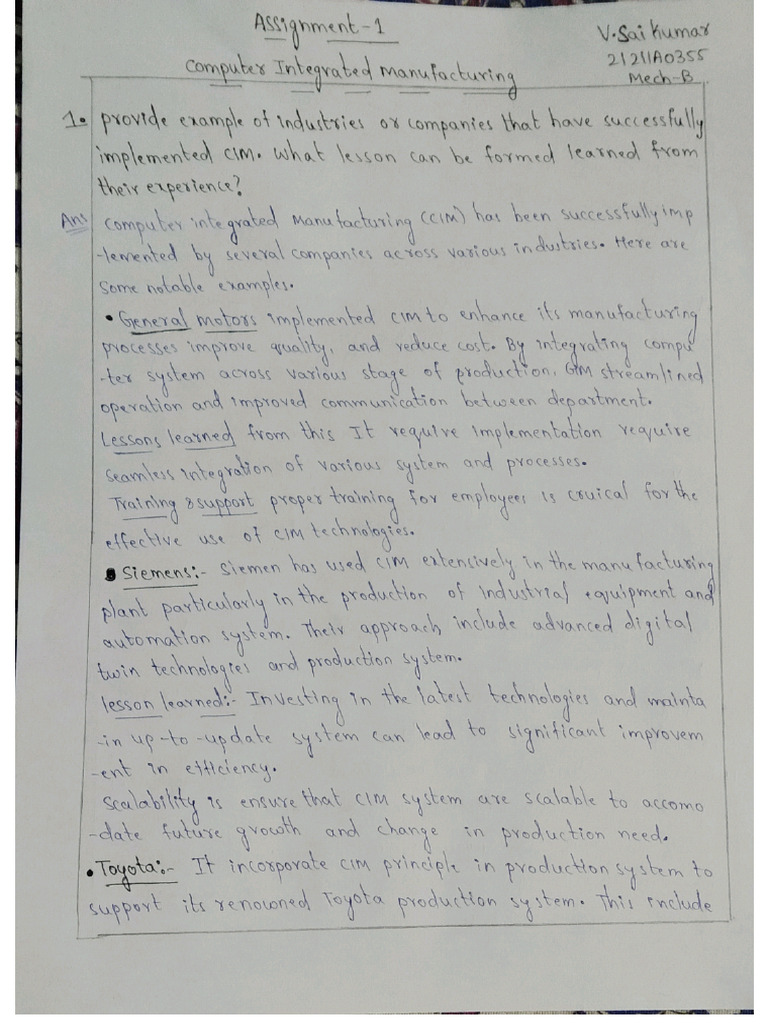 Assignment-1
V.Sai Kumar
21211A0355
Mech-B
Computer Integrated Manufacturing
1. Provide example of industries or companies that have successfully
implemented CIM. What lesson can be formed learned from
their experience?
Ans Computer integrated Manufacturing (CIM) has been successfully imp
-lemented by several companies across various industries. Here are
some notable examples.
• General motors implemented CIM to enhance its manufacturing
processes improve quality, and reduce cost. By integrating compu
-ter system across various stage of production, GM streamlined
operation and improved communication between department.
Lessons learned from this It require implementation require
seamless integration of various system and processes.
Training & support proper training for employees is cruical for the
effective use of CIM technologies.
• Siemens:- Siemen has used CIM extensively in the manufacturing
plant particularly in the production of industrial equipment and
automation system. Their approach include advanced digital
twin technologies and production system.
lesson learned:- Investing in the latest technologies and mainta
-in up-to-update system can lead to significant improvem
-ent in efficiency.
Scalability is ensure that CIM system are scalable to accomo
-date future growth and change in production need.
• Toyota:- It incorporate CIM principle in production system to
support its renowned Toyota production system. This include